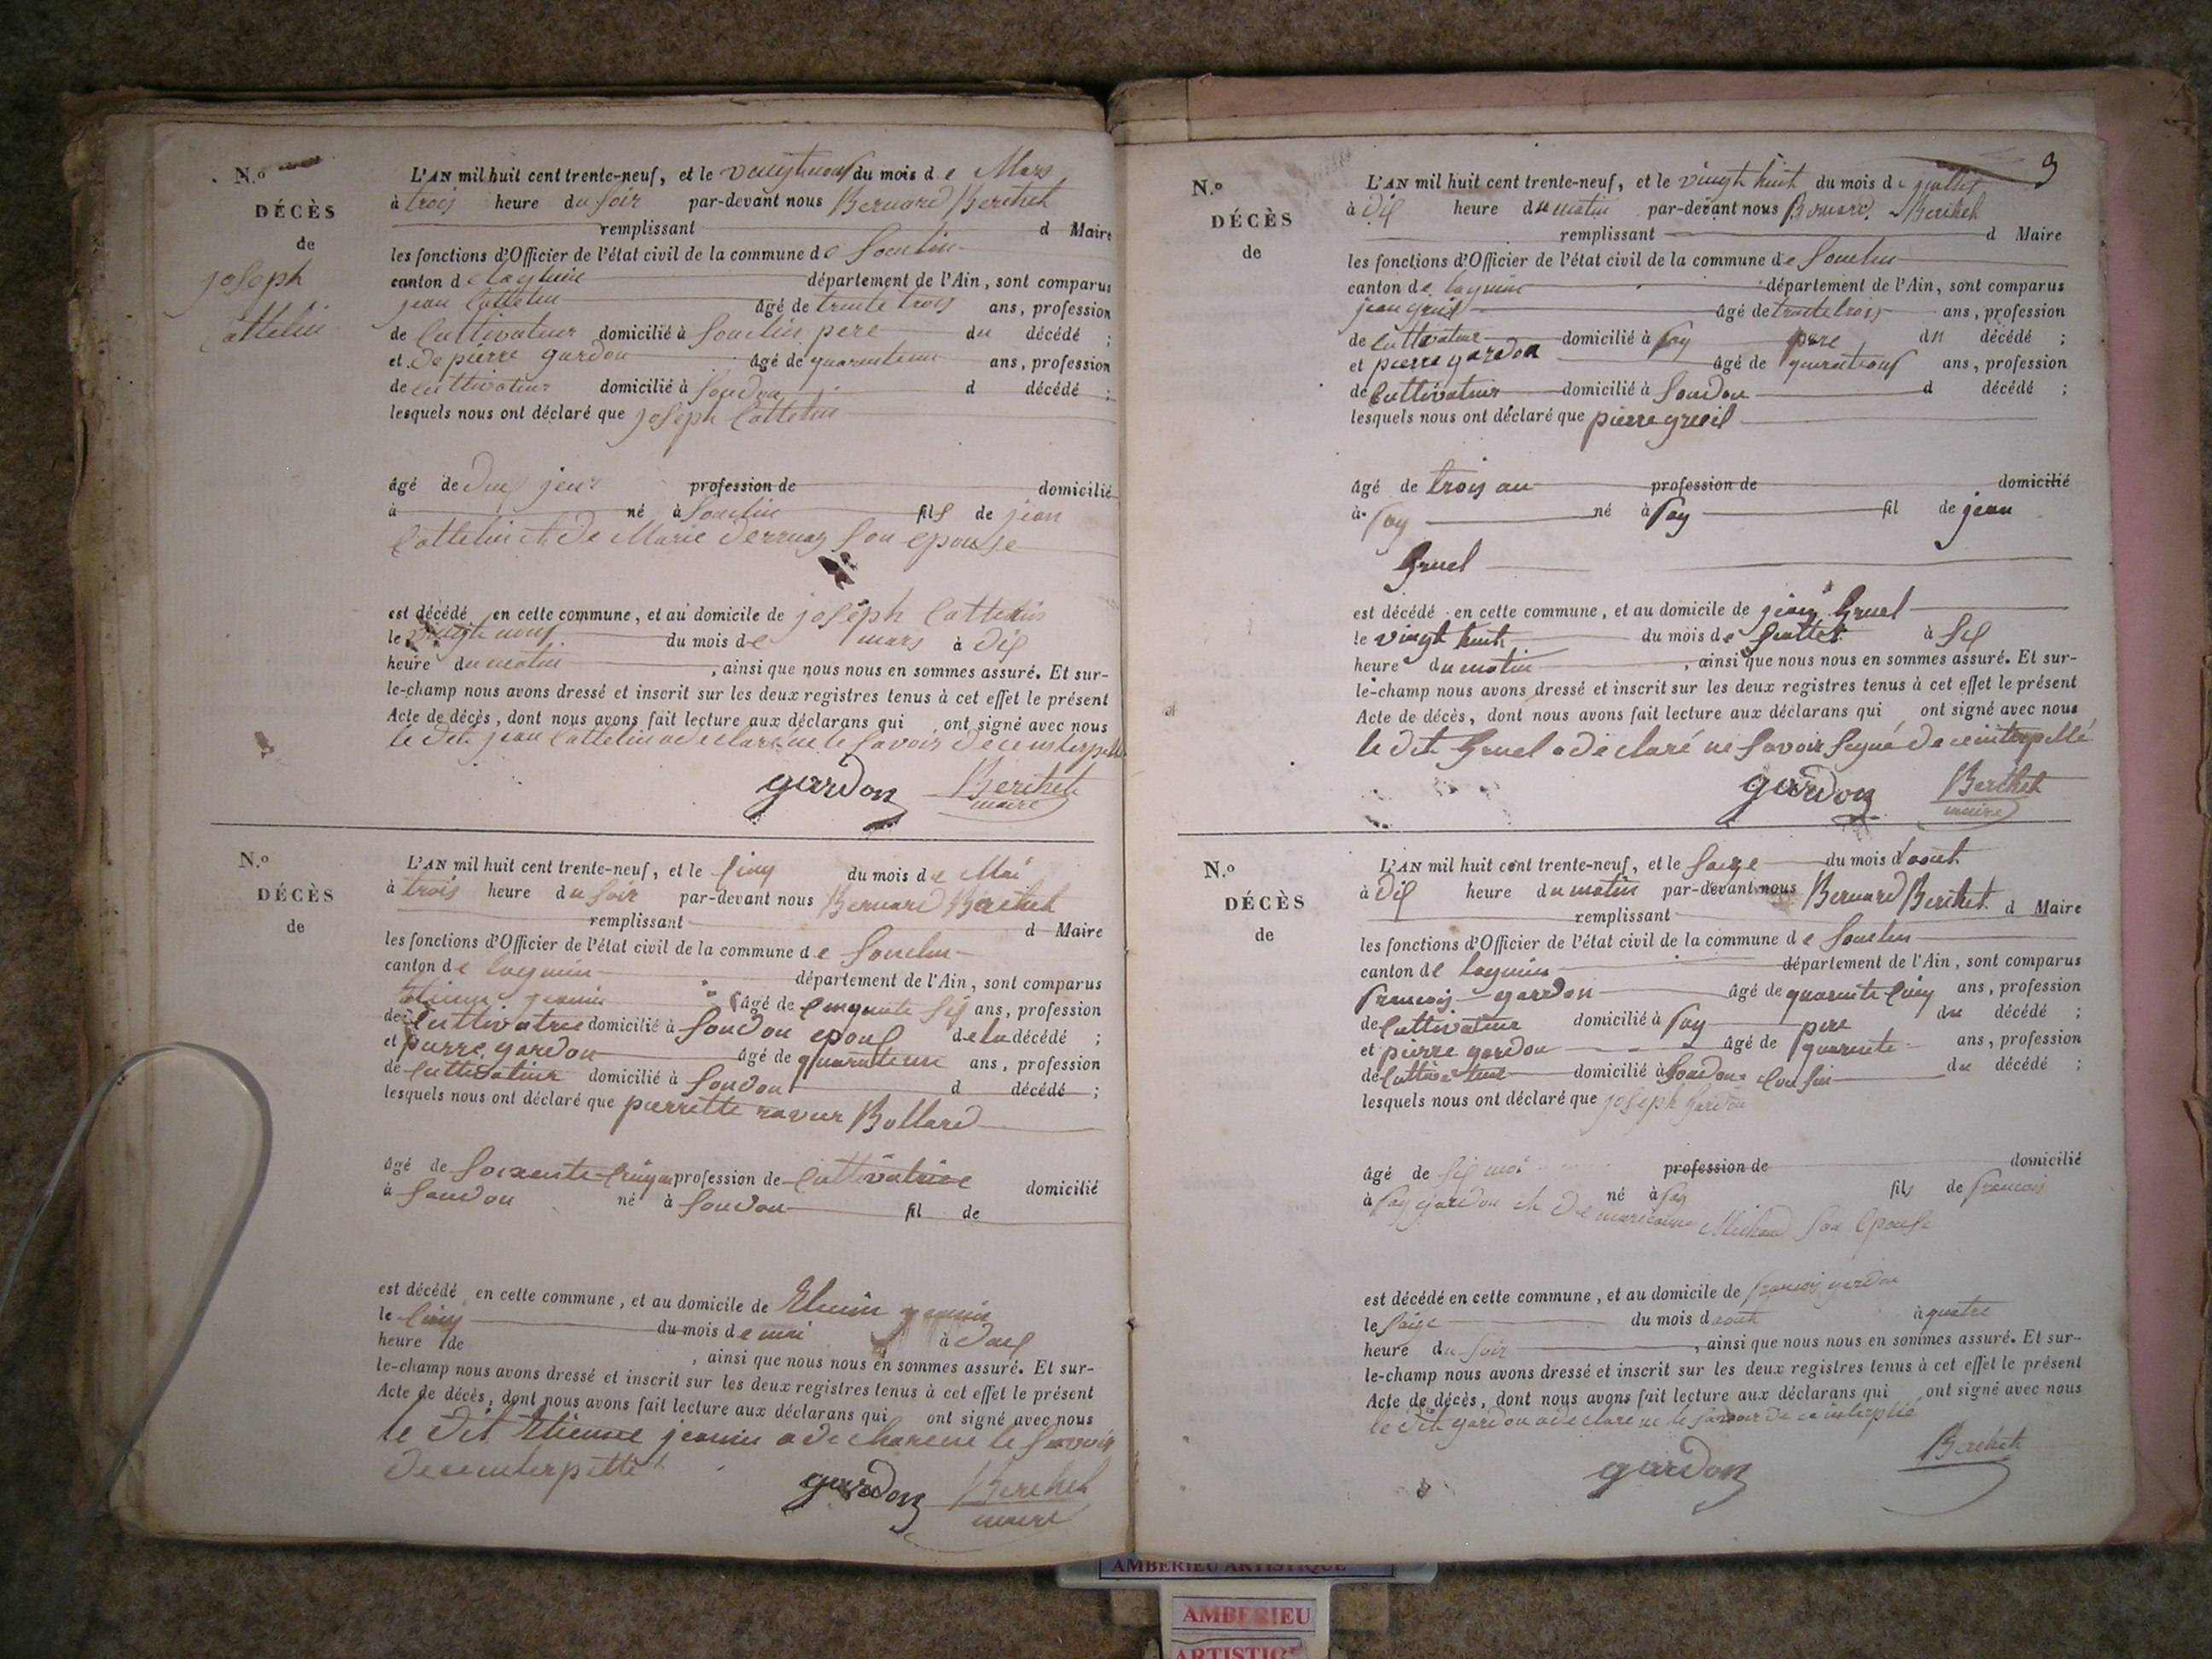 N.º
DÉCÈS
de
joseph
Cattelin
L'AN mil huit cent trente-neuf, et le vingt neuf du mois de Mars
à trois heure du soir par-devant nous Bernard Berthet
remplissant d Maire
les fonctions d'Officier de l'état civil de la commune de Souclin
canton de lagnieu département de l'Ain, sont comparus
jean Cattelin âgé de trente trois ans, profession
de Cultivateur domicilié à Souclin pere du décédé ;
et de pierre gardon âgé de quarante un ans, profession
de cultivateur domicilié à Soudon d décédé ;
lesquels nous ont déclaré que joseph Cattelin
âgé de jour profession de domicilié
à né à Souclin fils de jean
Cattelin et de Marie son epouse
est décédé en cette commune, et au domicile de joseph Cattelin
le vingt neuf du mois de mars à dix
heure du matin , ainsi que nous nous en sommes assuré. Et sur-
le-champ nous avons dressé et inscrit sur les deux registres tenus à cet effet le présent
Acte de décès, dont nous avons fait lecture aux déclarans qui ont signé avec nous
le dit jean Cattelin a declaré ne le savoir de ce interpellé
gardon Berthet
maire
N.º
DÉCÈS
de
L'AN mil huit cent trente-neuf, et le Cinq du mois de Mai
à trois heure du soir par-devant nous Bernard Berthet
remplissant d Maire
les fonctions d'Officier de l'état civil de la commune de Souclin
canton de lagnieu département de l'Ain, sont comparus
Etienne jeanin âgé de Cinquante six ans, profession
de Cultivatrice domicilié à Soudon epoux de la décédé ;
et pierre gardon âgé de quarante un ans, profession
de Cultivateur domicilié à Soudon d décédé ;
lesquels nous ont déclaré que pierrette Bollard
âgé de Soixante Cinq an profession de Cultivatrice domicilié
à Soudon né à Soudon fil de
est décédé en cette commune, et au domicile de Etienne jeanin
le Cinq du mois de mai à
heure de , ainsi que nous nous en sommes assuré. Et sur-
le-champ nous avons dressé et inscrit sur les deux registres tenus à cet effet le présent
Acte de décès, dont nous avons fait lecture aux déclarans qui ont signé avec nous
le dit Etienne jeanin a declare ne le savoir
de ce interpellé
gardon Berthet
maire
9
N.º
DÉCÈS
de
L'AN mil huit cent trente-neuf, et le vingt huit du mois de juillet
à dix heure du matin par-devant nous Bernard Berthet
remplissant d Maire
les fonctions d'Officier de l'état civil de la commune de Souclin
canton de lagnieu département de l'Ain, sont comparus
jean gruel âgé de trente trois ans, profession
de Cultivateur domicilié à Fay pere du décédé ;
et pierre gardon âgé de ans, profession
de Cultivateur domicilié à Soudon d décédé ;
lesquels nous ont déclaré que pierre
âgé de trois an profession de domicilié
à Fay né à Fay fil de jean
Gruel
est décédé en cette commune, et au domicile de jean Gruel
le vingt huit du mois de juillet à six
heure du matin , ainsi que nous nous en sommes assuré. Et sur-
le-champ nous avons dressé et inscrit sur les deux registres tenus à cet effet le présent
Acte de décès, dont nous avons fait lecture aux déclarans qui ont signé avec nous
le dit Gruel a declaré ne savoir signé de ce interpellé
gardon Berthet
maire
N.º
DÉCÈS
de
L'AN mil huit cent trente-neuf, et le Saize du mois d'aout
à dix heure du matin par-devant nous Bernard Berthet d Maire
remplissant
les fonctions d'Officier de l'état civil de la commune de Souclin
canton de lagnieu département de l'Ain, sont comparus
francois gardon âgé de quarante Cinq ans, profession
de Cultivateur domicilié à Fay pere du décédé ;
et pierre gardon âgé de quarante ans, profession
de Cultivateur domicilié à Soudon Cousin du décédé ;
lesquels nous ont déclaré que joseph Gardon
âgé de six moi profession de domicilié
à Fay né à Fay fils de francois
gardon et de Michaud son epouse
est décédé en cette commune, et au domicile de francois gardon
le Saize du mois d aout à quatre
heure du soir , ainsi que nous nous en sommes assuré. Et sur-
le-champ nous avons dressé et inscrit sur les deux registres tenus à cet effet le présent
Acte de décès, dont nous avons fait lecture aux déclarans qui ont signé avec nous
le dit gardon a declare ne le savoir de ce interpellé
gardon Berthet
AMBERIEU ARTISTIQUE
AMBERIEU
ARTISTIQUE